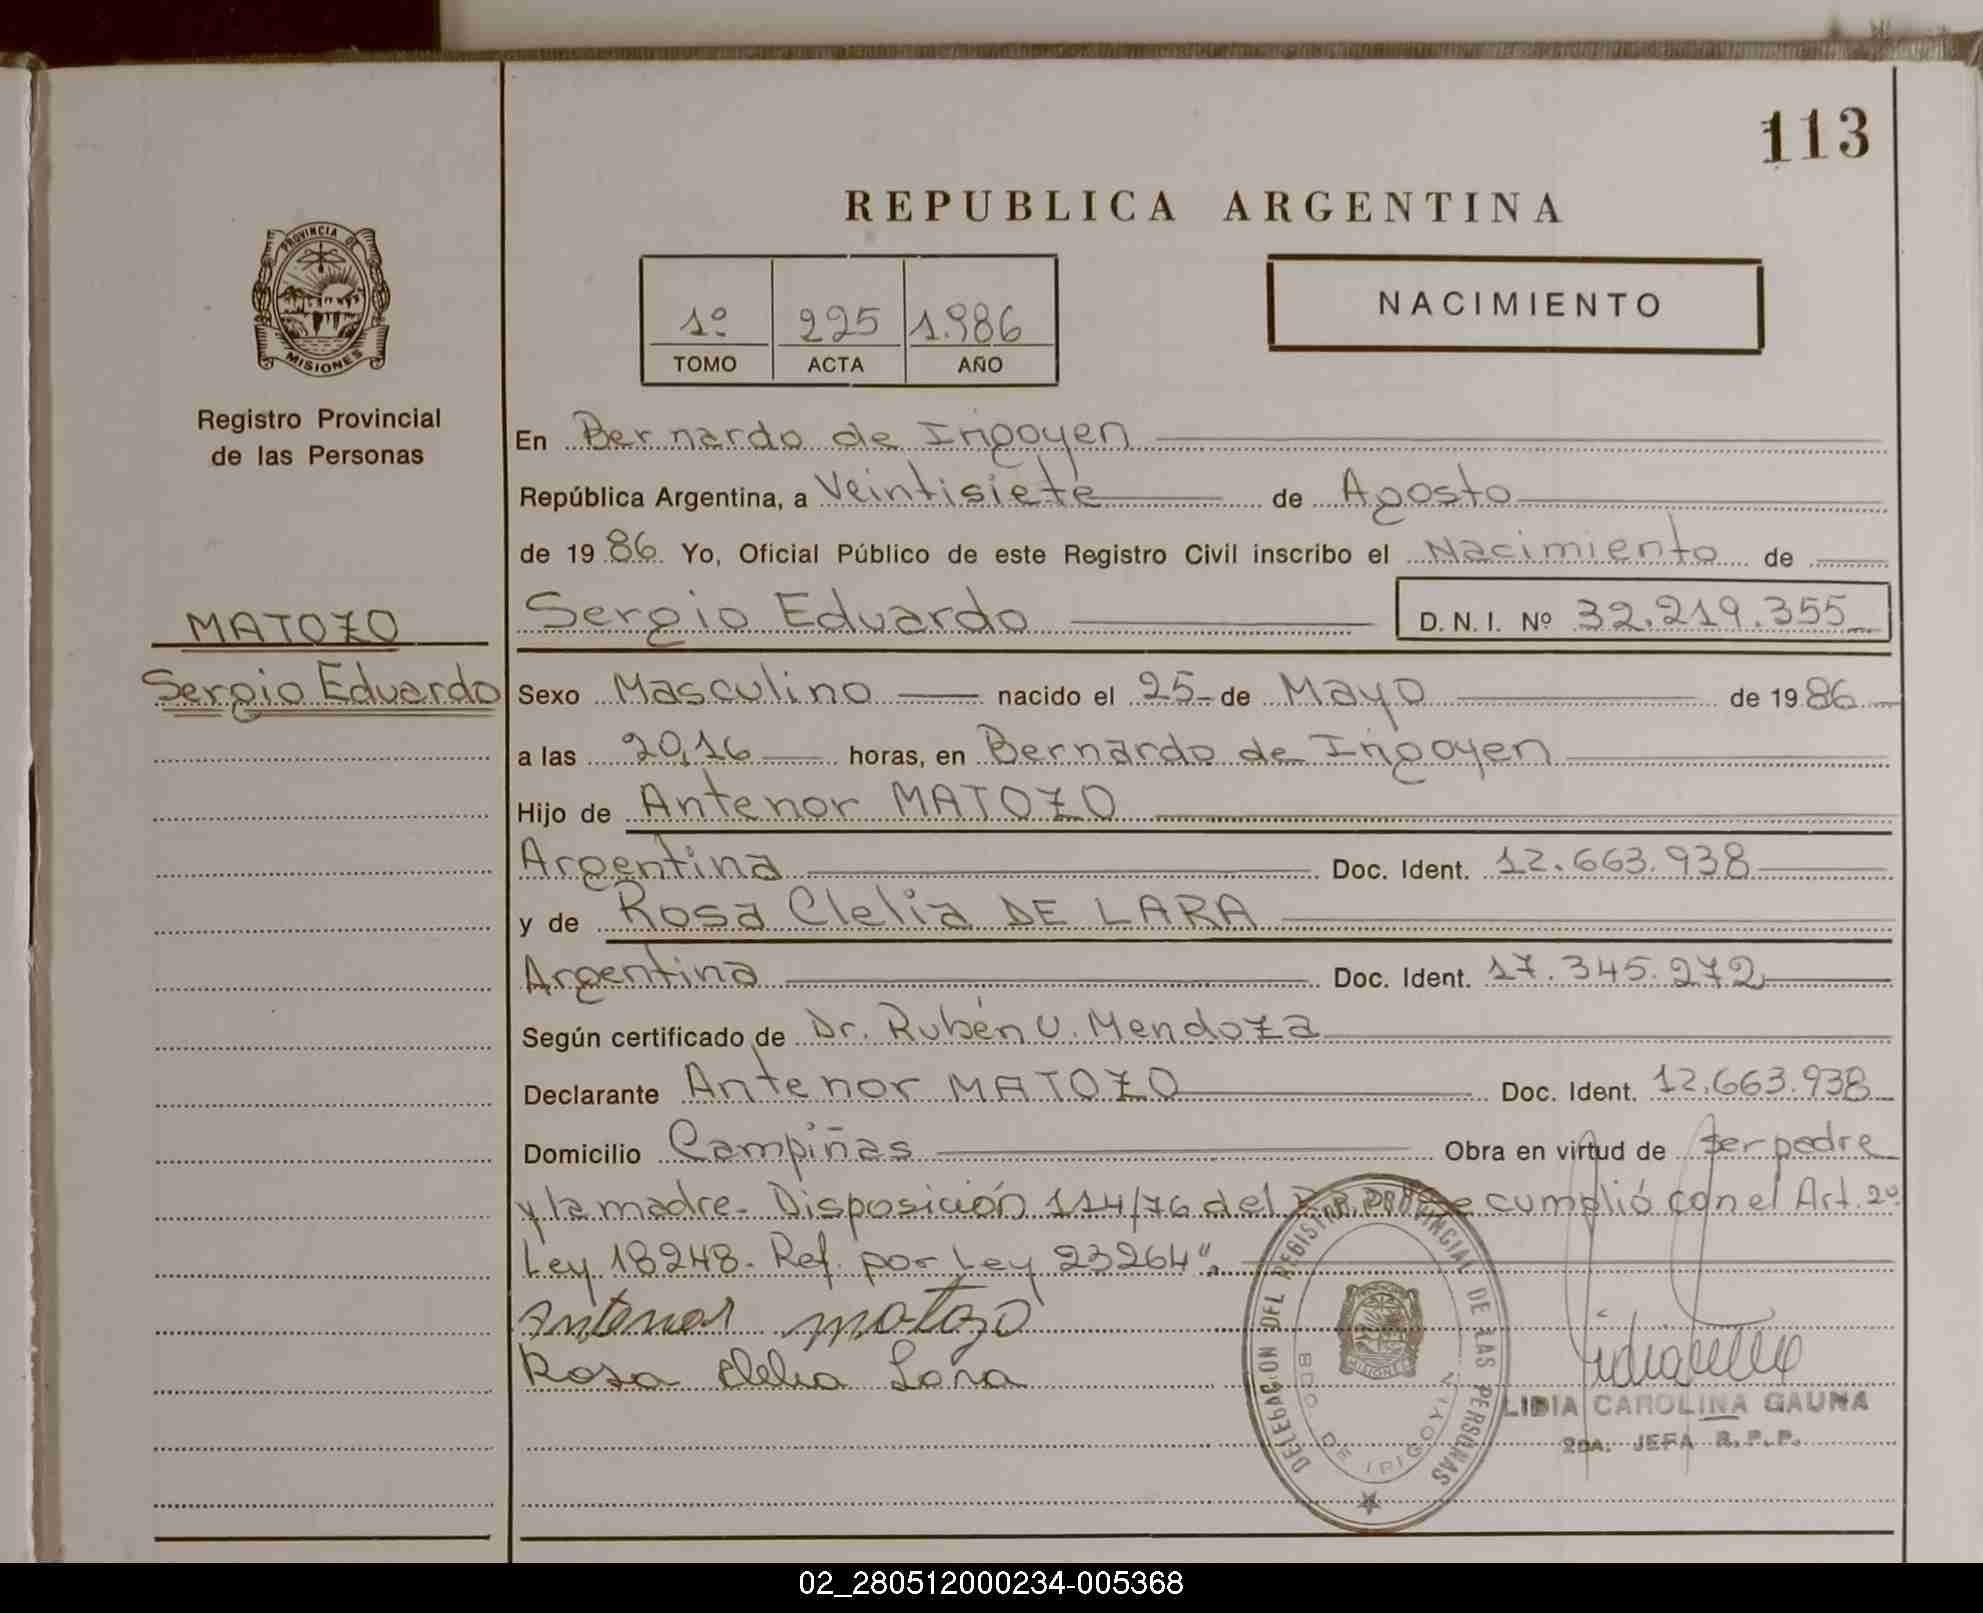 113
REPUBLICA ARGENTINA
PROVINCIA DE
MISIONES
Registro Provincial
de las Personas
1º 225 1.986
TOMO ACTA AÑO
NACIMIENTO
En Bernardo de Irigoyen
República Argentina, a Veintisiete de Agosto
de 19 86. Yo, Oficial Público de este Registro Civil inscribo el Nacimiento de
MATOZO
Sergio Eduardo
Sergio Eduardo D.N.I. Nº 32.219.355
Sexo Masculino nacido el 25 de Mayo de 19 86
a las 20,16 horas, en Bernardo de Irigoyen
Hijo de Antenor MATOZO
Argentina Doc. Ident. 12.663.938
y de Rosa Clelia DE LARA
Argentina Doc. Ident. 17.345.272
Según certificado de Dr. Rubén U. Mendoza
Declarante Antenor MATOZO Doc. Ident. 12.663.938
Domicilio Campiñas Obra en virtud de ser padre
y la madre. Disposición 114/76 del Se cumplió con el Art. 2º
Ley 18248. Ref. por Ley 23264".
Antenor matozo
Rosa Clelia Lara
DELEGACION DEL REGISTRO PROVINCIAL DE LAS PERSONAS
BDO DE IRIGOYEN
MISIONES
LIDIA CAROLINA GAUNA
2DA. JEFA R.P.P.
02_280512000234-005368